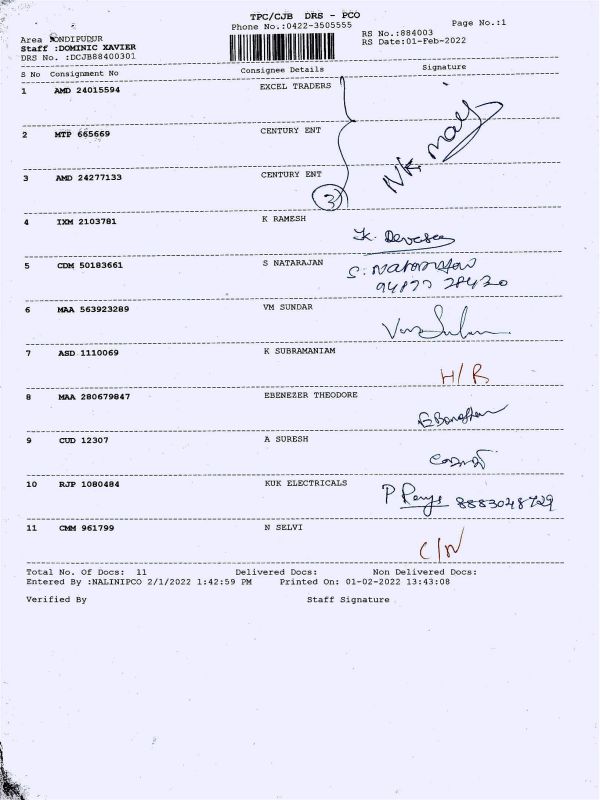 TPC/CJB DRS - PCO
Phone No.:0422-3505555
Page No.:1
Area :ONDIPUDUR
RS No.:884003
Staff :DOMINIC XAVIER
RS Date:01-Feb-2022
DRS No. :DCJB88400301
S No Consignment No Consignee Details Signature
1 AMD 24015594 EXCEL TRADERS
2 MTP 665669 CENTURY ENT
3 AMD 24277133 CENTURY ENT
3
4 IXM 2103781 K RAMESH
5 CDM 50183661 S NATARAJAN
6 MAA 563923289 VM SUNDAR
7 ASD 1110069 K SUBRAMANIAM
H/R
8 MAA 280679847 EBENEZER THEODORE
9 CUD 12307 A SURESH
10 RJP 1080484 KUK ELECTRICALS
8883048729
11 CMM 961799 N SELVI
C/N
Total No. Of Docs: 11 Delivered Docs: Non Delivered Docs:
Entered By :NALINIPCO 2/1/2022 1:42:59 PM Printed On: 01-02-2022 13:43:08
Verified By Staff Signature